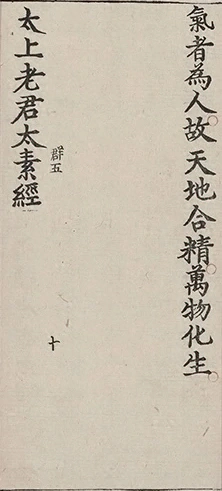 氣者為人故天地合精萬物化生
群五
十
太上老君太素經